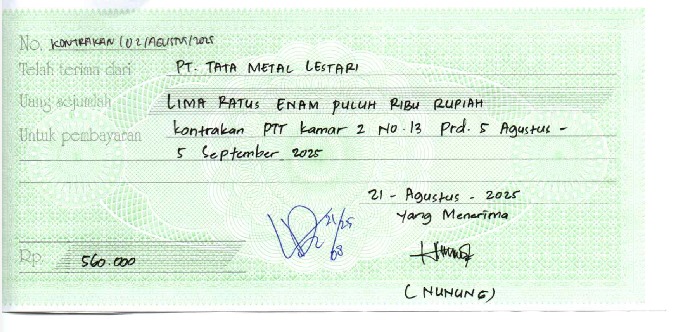 No. KONTRAKAN/02/AGUSTUS/2025
Telah terima dari PT. TATA METAL LESTARI
Uang sejumlah LIMA RATUS ENAM PULUH RIBU RUPIAH
Untuk pembayaran kontrakan PTT kamar 2 No.13 Prd. 5 Agustus -
5 September 2025
21 - Agustus - 2025
Yang Menerima
21/25
08
Rp. 560.000
(NUNUNG)